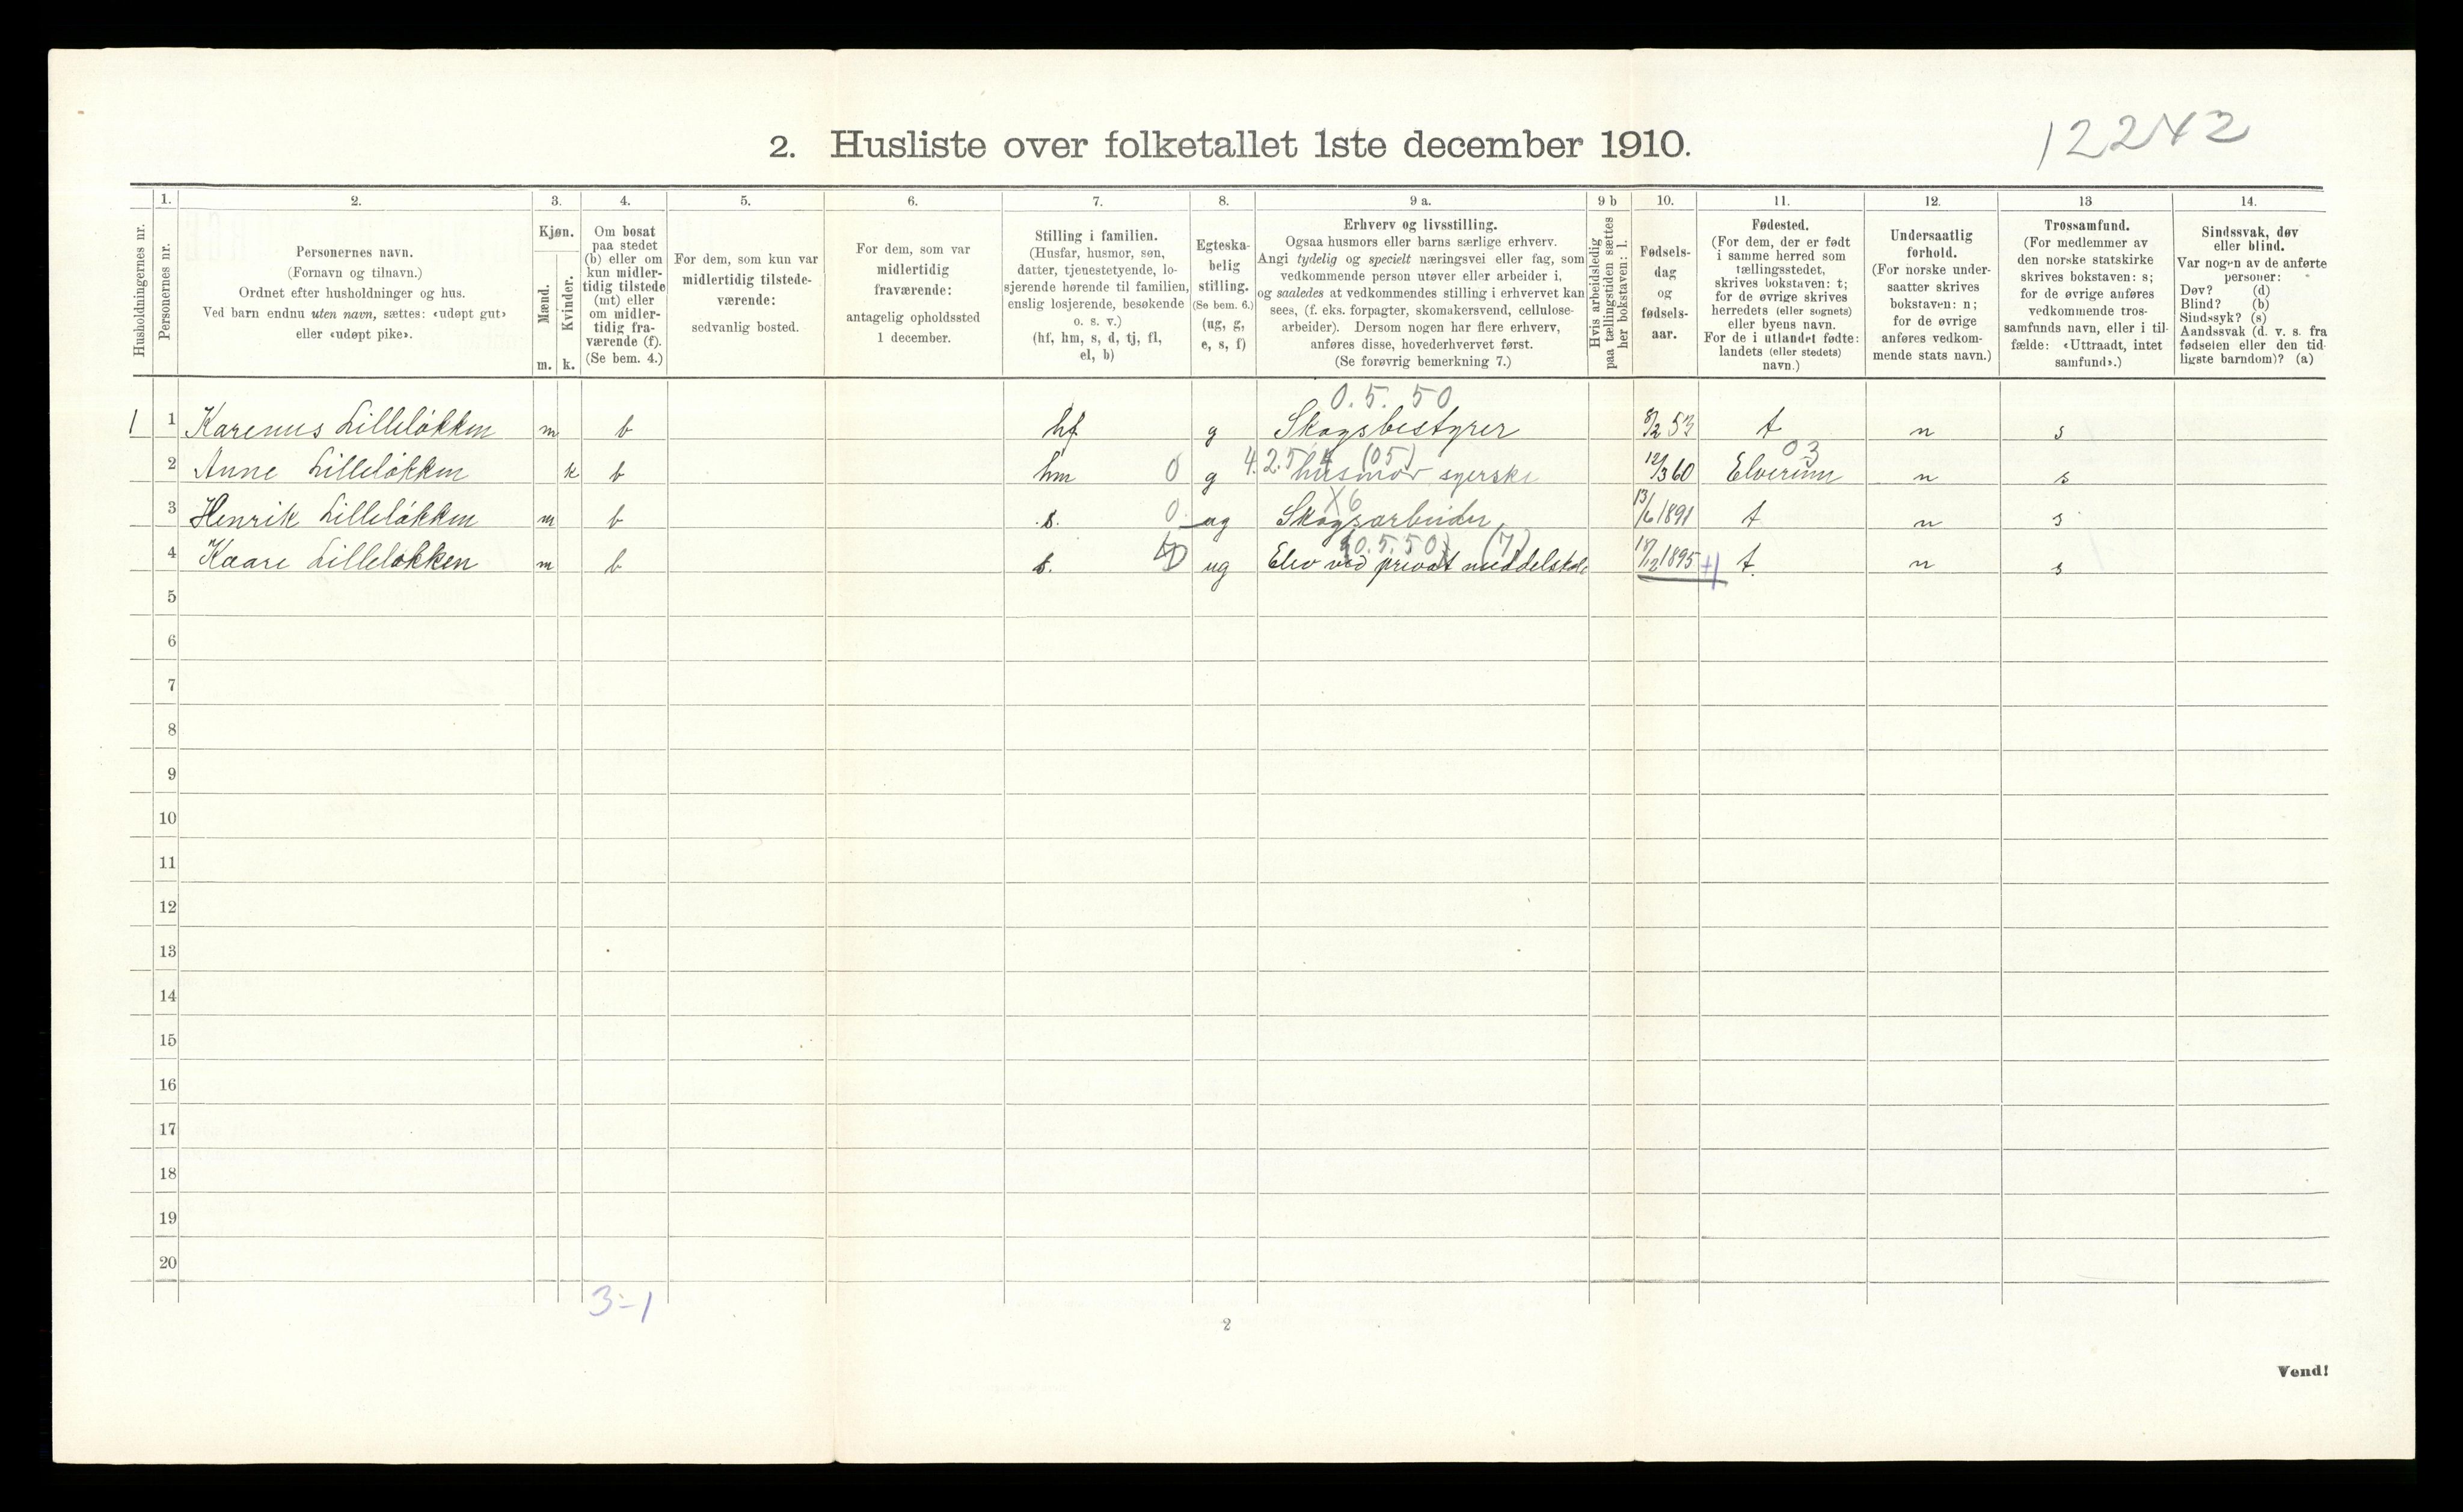 12242
2. Husliste over folketallet 1ste december 1910.
Husholdningernes nr.
1. Personernes nr.
2. Personernes navn.
(Fornavn og tilnavn.)
Ordnet efter husholdninger og hus.
Ved barn endnu uten navn, sættes: «udøpt gut»
eller «udøpt pike».
3. Kjøn.
Mænd. m.
Kvinder. k.
4. Om bosat
paa stedet
(b) eller om
kun midler-
tidig tilstede
(mt) eller
om midler-
tidig fra-
værende (f).
(Se bem. 4.)
5. For dem, som kun var
midlertidig tilstede-
værende:
sedvanlig bosted.
6. For dem, som var
midlertidig
fraværende:
antagelig opholdssted
1 december.
7. Stilling i familien.
(Husfar, husmor, søn,
datter, tjenestetyende, lo-
sjerende hørende til familien,
enslig losjerende, besøkende
o. s. v.)
(hf, hm, s, d, tj, fl,
el, b)
8. Egteska-
belig
stilling.
(Se bem. 6.)
(ug, g,
e, s, f)
9 a. Erhverv og livsstilling.
Ogsaa husmors eller barns særlige erhverv.
Angi tydelig og specielt næringsvei eller fag, som
vedkommende person utøver eller arbeider i,
og saaledes at vedkommendes stilling i erhvervet kan
sees, (f. eks. forpagter, skomakersvend, cellulose-
arbeider). Dersom nogen har flere erhverv,
anføres disse, hovederhvervet først.
(Se forøvrig bemerkning 7.)
9 b Hvis arbeidsledig
paa tællingstiden sættes
her bokstaven: l.
10. Fødsels-
dag
og
fødsels-
aar.
11. Fødested.
(For dem, der er født
i samme herred som
tællingsstedet,
skrives bokstaven: t;
for de øvrige skrives
herredets (eller sognets)
eller byens navn.
For de i utlandet fødte:
landets (eller stedets)
navn.)
12. Undersaatlig
forhold.
(For norske under-
saatter skrives
bokstaven: n;
for de øvrige
anføres vedkom-
mende stats navn.)
13 Trossamfund.
(For medlemmer av
den norske statskirke
skrives bokstaven: s;
for de øvrige anføres
vedkommende tros-
samfunds navn, eller i til-
fælde: «Uttraadt, intet
samfund».)
14. Sindssvak, døv
eller blind.
Var nogen av de anførte
personer:
Døv? (d)
Blind? (b)
Sindssyk? (s)
Aandssvak (d. v. s. fra
fødselen eller den tid-
ligste barndom)? (a)
0.5.50
1 1 Karenus Lilleløkken m b hf g Skogsbestyrer 8/2 53 t n s
4.2.5 (05) 03
2 Anne Lilleløkken k b hm 0 g husmor syerske 12/3 60 Elverum n s
X6
3 Henrik Lilleløkken m b s. 0 ug Skogsarbeider 13/6 1891 t n s
0.5.50 (7)
4 Kaare Lilleløkken m b s. ug Elev ved privat middelskole 1895 t. n s
5
6
7
8
9
10
11
12
13
14
15
16
17
18
19
20
3-1
2
Vend!